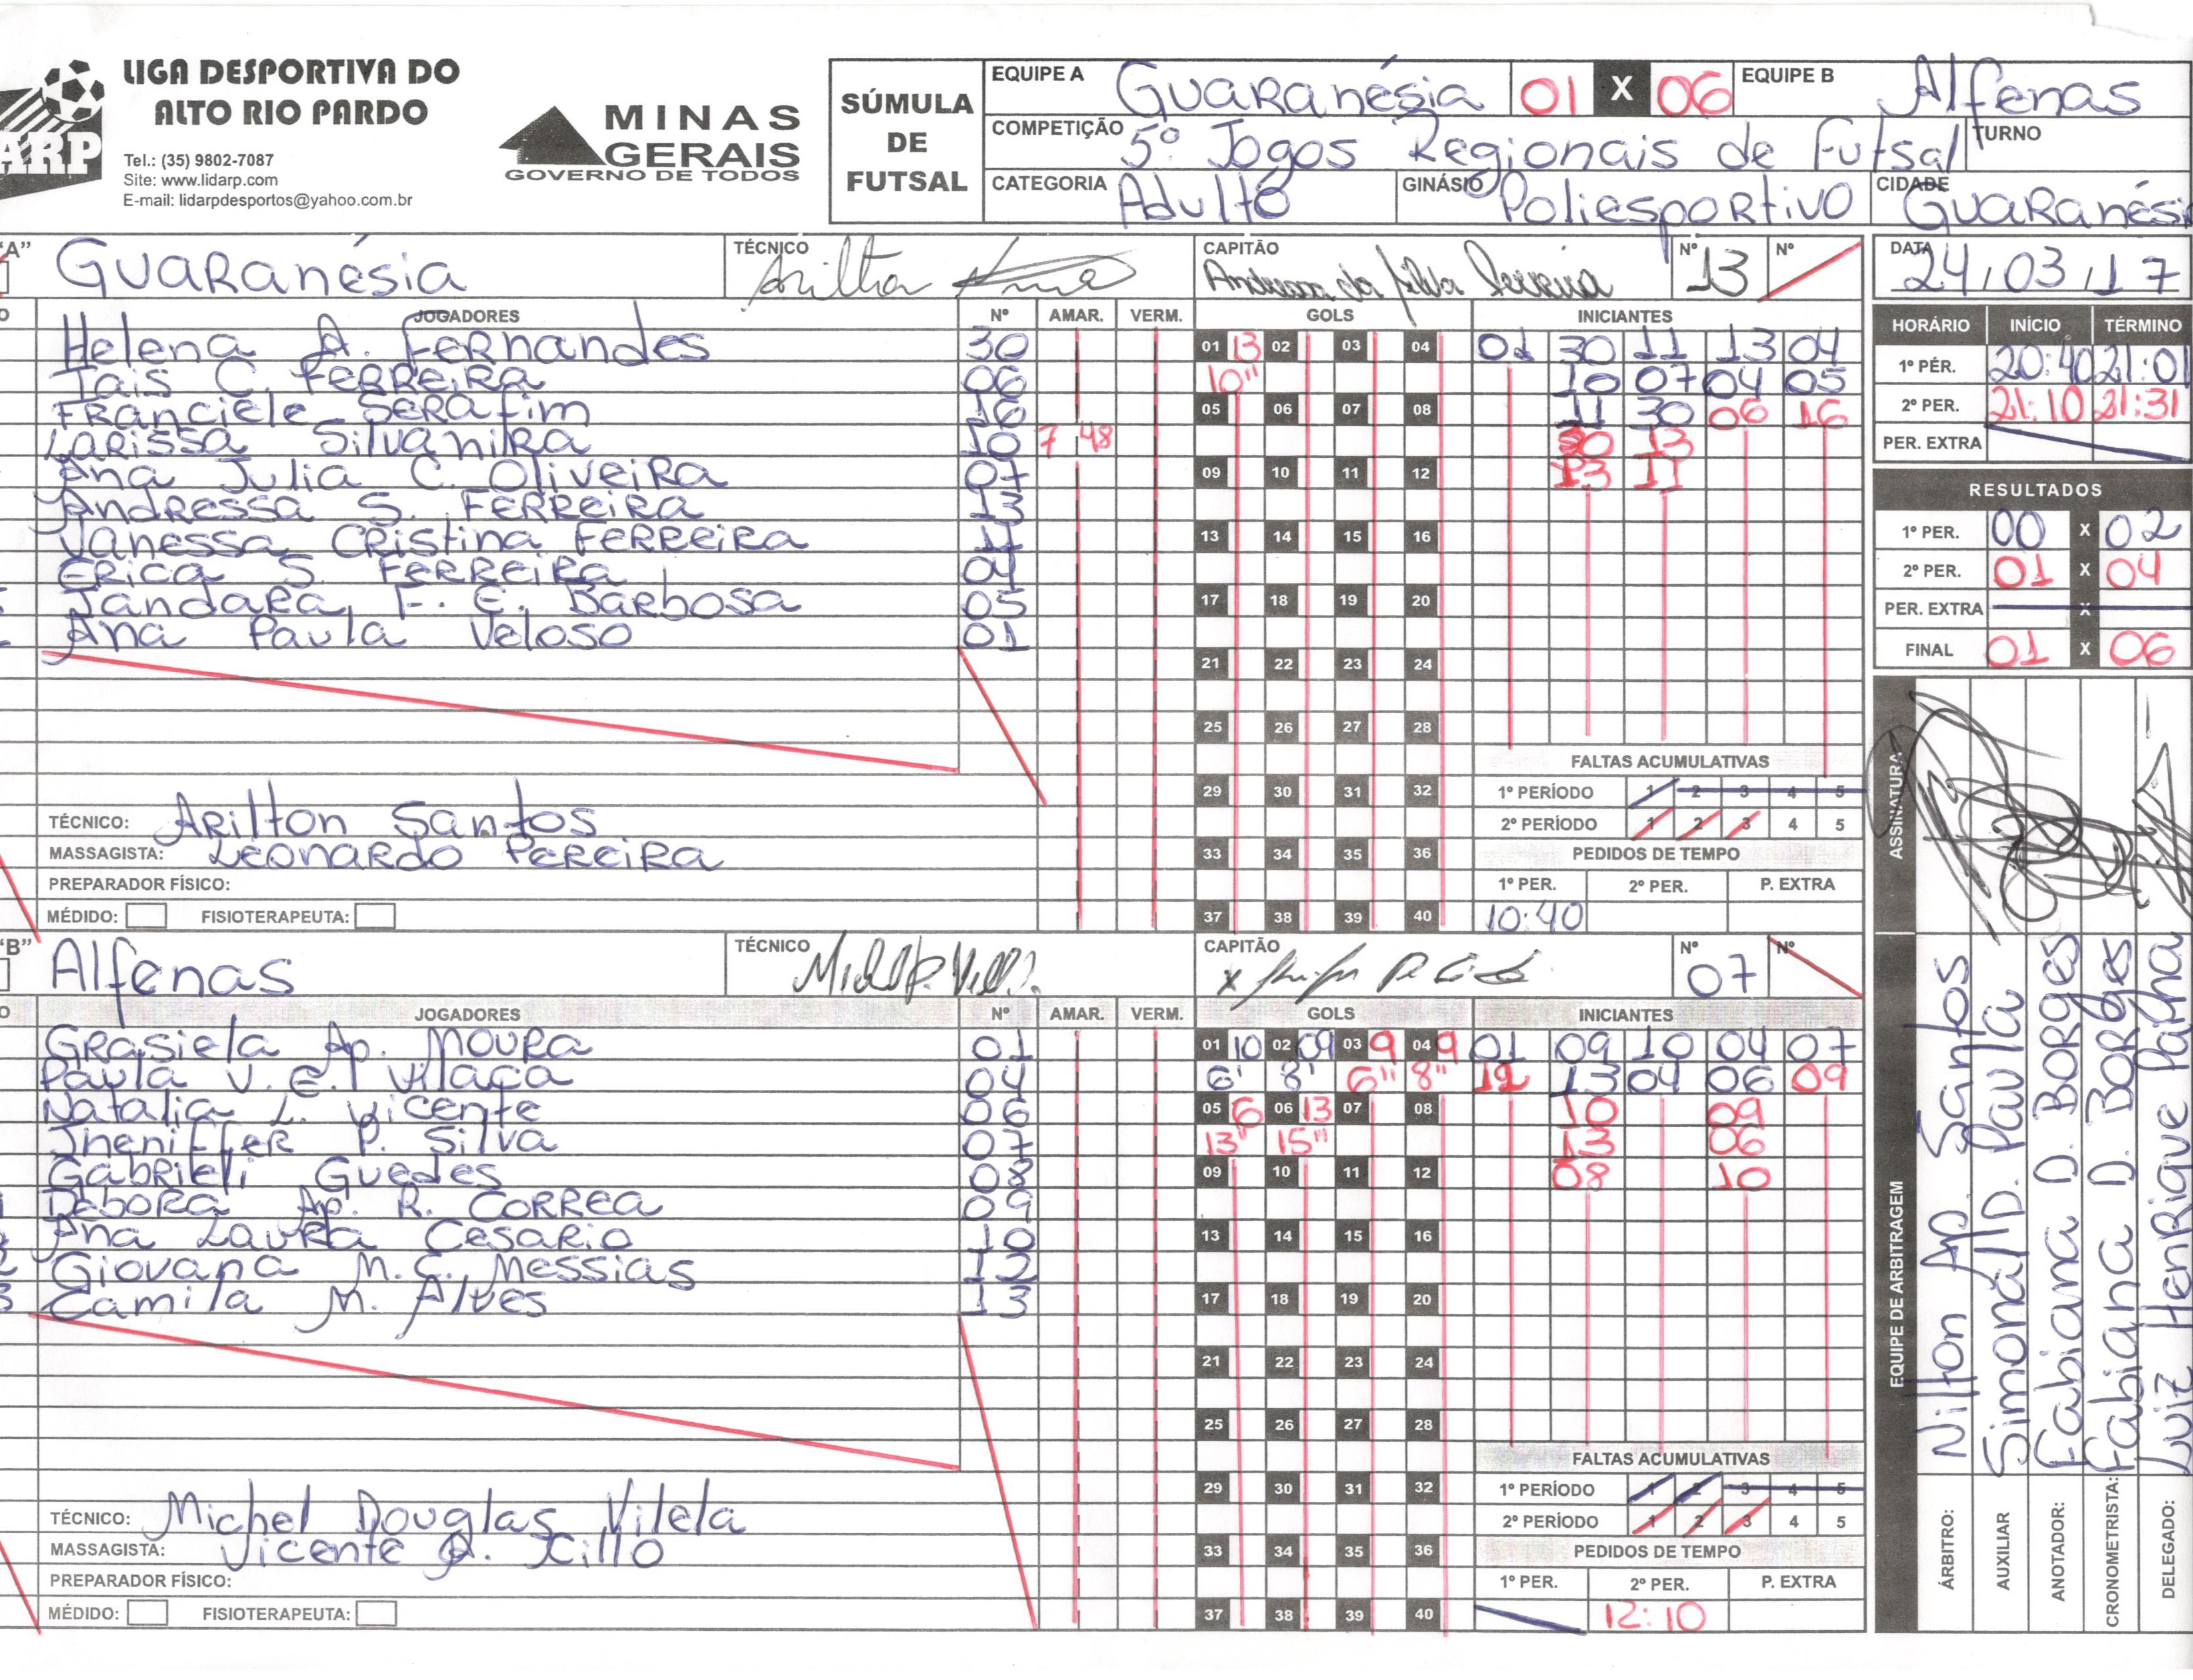 LIGA DESPORTIVA DO
ALTO RIO PARDO
ARP
Tel.: (35) 9802-7087
Site: www.lidarp.com
E-mail: lidarpdesportos@yahoo.com.br
MINAS
GERAIS
GOVERNO DE TODOS
SÚMULA
DE
FUTSAL
EQUIPE A Guaranésia 01 X 06 EQUIPE B Alfenas
COMPETIÇÃO 5º Jogos Regionais de Futsal TURNO
CATEGORIA Adulto GINÁSIO Poliesportivo CIDADE Guaranési
"A" Guaranésia TÉCNICO Arilton CAPITÃO Andressa da Silva Ferreira Nº 13 Nº
DATA 24/03/17
JOGADORES Nº AMAR. VERM. GOLS INICIANTES
Helena A. Fernandes 30 01 13 02 03 04 01 30 11 13 04
Tais C. Ferreira 06 10" 10 07 04 05
Franciele Serafim 16 05 06 07 08 11 30 06 16
Larissa Silvanira 10 7 48 30 13
Ana Julia C. Oliveira 07 09 10 11 12 13 11
Andressa S. Ferreira 13
Vanessa Cristina Ferreira 11 13 14 15 16
Erica S. Ferreira 04
Jandara F. C. Barbosa 05 17 18 19 20
Ana Paula Veloso 01
21 22 23 24
25 26 27 28
29 30 31 32
33 34 35 36
37 38 39 40
FALTAS ACUMULATIVAS
1º PERÍODO 1 2 3 4 5
2º PERÍODO 1 2 3 4 5
PEDIDOS DE TEMPO
1º PER. 2º PER. P. EXTRA
10:40
TÉCNICO: Arilton Santos
MASSAGISTA: Leonardo Pereira
PREPARADOR FÍSICO:
MÉDIDO: FISIOTERAPEUTA:
HORÁRIO INÍCIO TÉRMINO
1º PÉR. 20:40 21:01
2º PER. 21:10 21:31
PER. EXTRA
RESULTADOS
1º PER. 00 X 02
2º PER. 01 X 04
PER. EXTRA X
FINAL 01 X 06
"B" Alfenas TÉCNICO CAPITÃO Nº 07 Nº
JOGADORES Nº AMAR. VERM. GOLS INICIANTES
Grasiela Ap. Moura 01 01 10 02 09 03 9 04 9 01 09 10 04 07
Paula V. E. Vilaça 04 6' 8' 6" 8" 12 13 04 06 09
Natalia L. Vicente 06 05 6 06 13 07 08 10 09
Jheniffer P. Silva 07 13" 15" 13 06
Gabrieli Guedes 08 09 10 11 12 08 10
Debora Ap. R. Correa 09
Ana Laura Cesario 10 13 14 15 16
Giovana M. C. Messias 12
Camila M. Alves 13 17 18 19 20
21 22 23 24
25 26 27 28
29 30 31 32
33 34 35 36
37 38 39 40
FALTAS ACUMULATIVAS
1º PERÍODO 1 2 3 4 5
2º PERÍODO 1 2 3 4 5
PEDIDOS DE TEMPO
1º PER. 2º PER. P. EXTRA
12:10
TÉCNICO: Michel Douglas Vilela
MASSAGISTA: Vicente
PREPARADOR FÍSICO:
MÉDIDO: FISIOTERAPEUTA:
ASSINATURA
EQUIPE DE ARBITRAGEM
ÁRBITRO: Nilton Ap. Santos
AUXILIAR Simonal P. Paula
ANOTADOR: Fabiana D. Borges
CRONOMETRISTA: Fabiana D. Borges
DELEGADO: Luiz Henrique